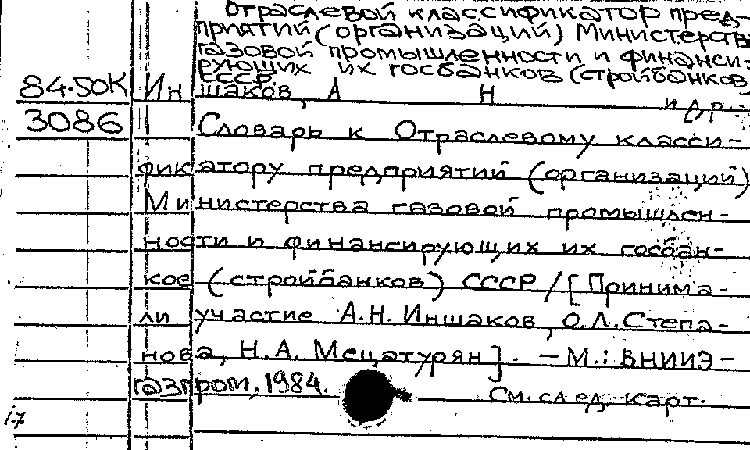 Отраслевой классификатор пред-
приятий (организаций) Министерств
газовой промышленности и финанси-
рующих их госбанков (стройбанков
СССР
84-50К Иншаков, А Н и др.
3086 Словарь к Отраслевому класси-
фикатору предприятий (организаций)
Министерства газовой промышлен-
ности и финансирующих их госбан-
ков (стройбанков) СССР / [Принима-
ли участие А.Н. Иншаков, О.Л. Степа-
нова, Н.А. Мецатурян]. — М.: ВНИИЭ-
газпром, 1984.
См. след. карт.